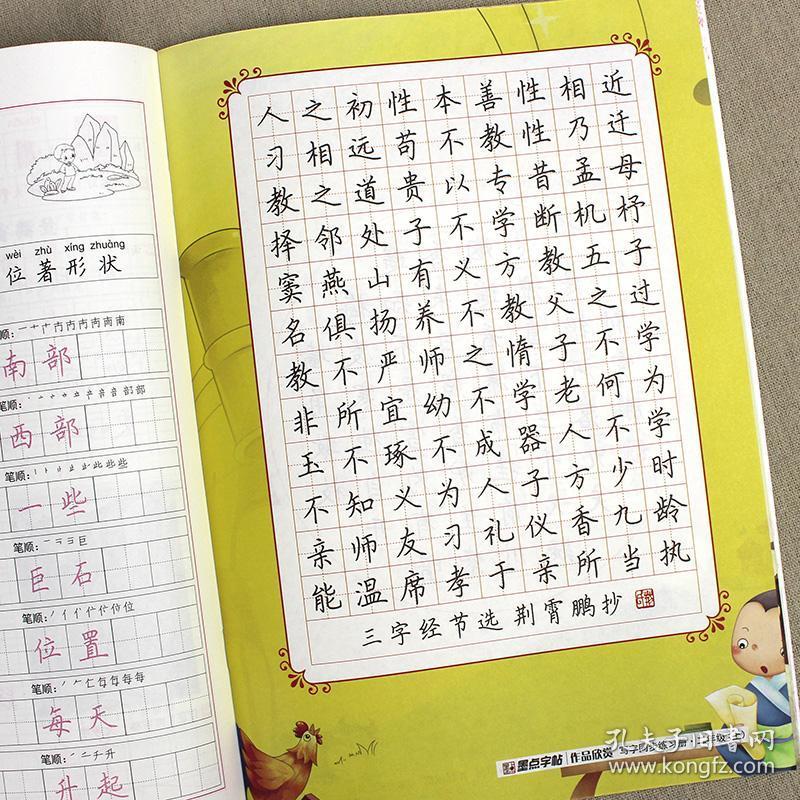 wèi zhù xíng zhuàng
位著形状
笔顺:
南部
笔顺:
西部
笔顺:
一些
笔顺:
巨石
笔顺:
位置
笔顺:
每天
笔顺:
升起
人之初性本善性相近
习相远苟不教性乃迁
教之道贵以专昔孟母
择邻处子不学断机杼
窦燕山有义方教五子
名俱扬养不教父之过
教不严师之惰子不学
非所宜幼不学老何为
玉不琢不成器人不学
不知义为人子方少时
亲师友习礼仪香九龄
能温席孝于亲所当执
三字经节选 荆霄鹏抄
墨点字帖 作品欣赏 写字同步练习册
孔夫子旧书网
www.kongfz.com